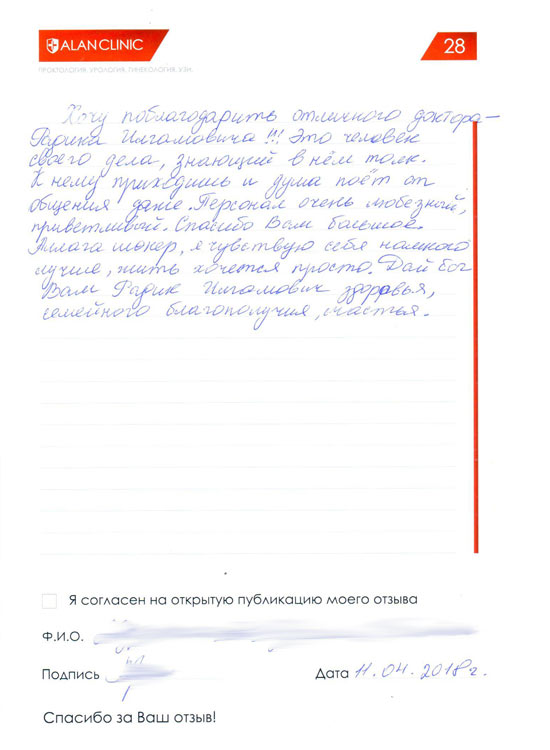 ALANCLINIC
28
ПРОКТОЛОГИЯ. УРОЛОГИЯ. ГИНЕКОЛОГИЯ. УЗИ.
Хочу поблагодарить отличного доктора -
Радика Илгамовича!!! Это человек
своего дела, знающий в нём толк.
К нему приходишь и душа поёт от
общения даже. Персонал очень любезный,
приветливый. Спасибо Вам большое.
Аллага шокер, я чувствую себя намного
лучше, жить хочется просто. Дай Бог
Вам Радик Илгамович здоровья,
семейного благополучия, счастья.
Я согласен на открытую публикацию моего отзыва
Ф.И.О.
Подпись
Дата 11.04.2018г.
Спасибо за Ваш отзыв!